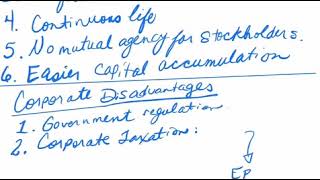 4. Continuous life
5. No mutual agency for stockholders.
6. Easier capital accumulation
Corporate Disadvantages
1. Government regulation
2. Corporate Taxation:
EP